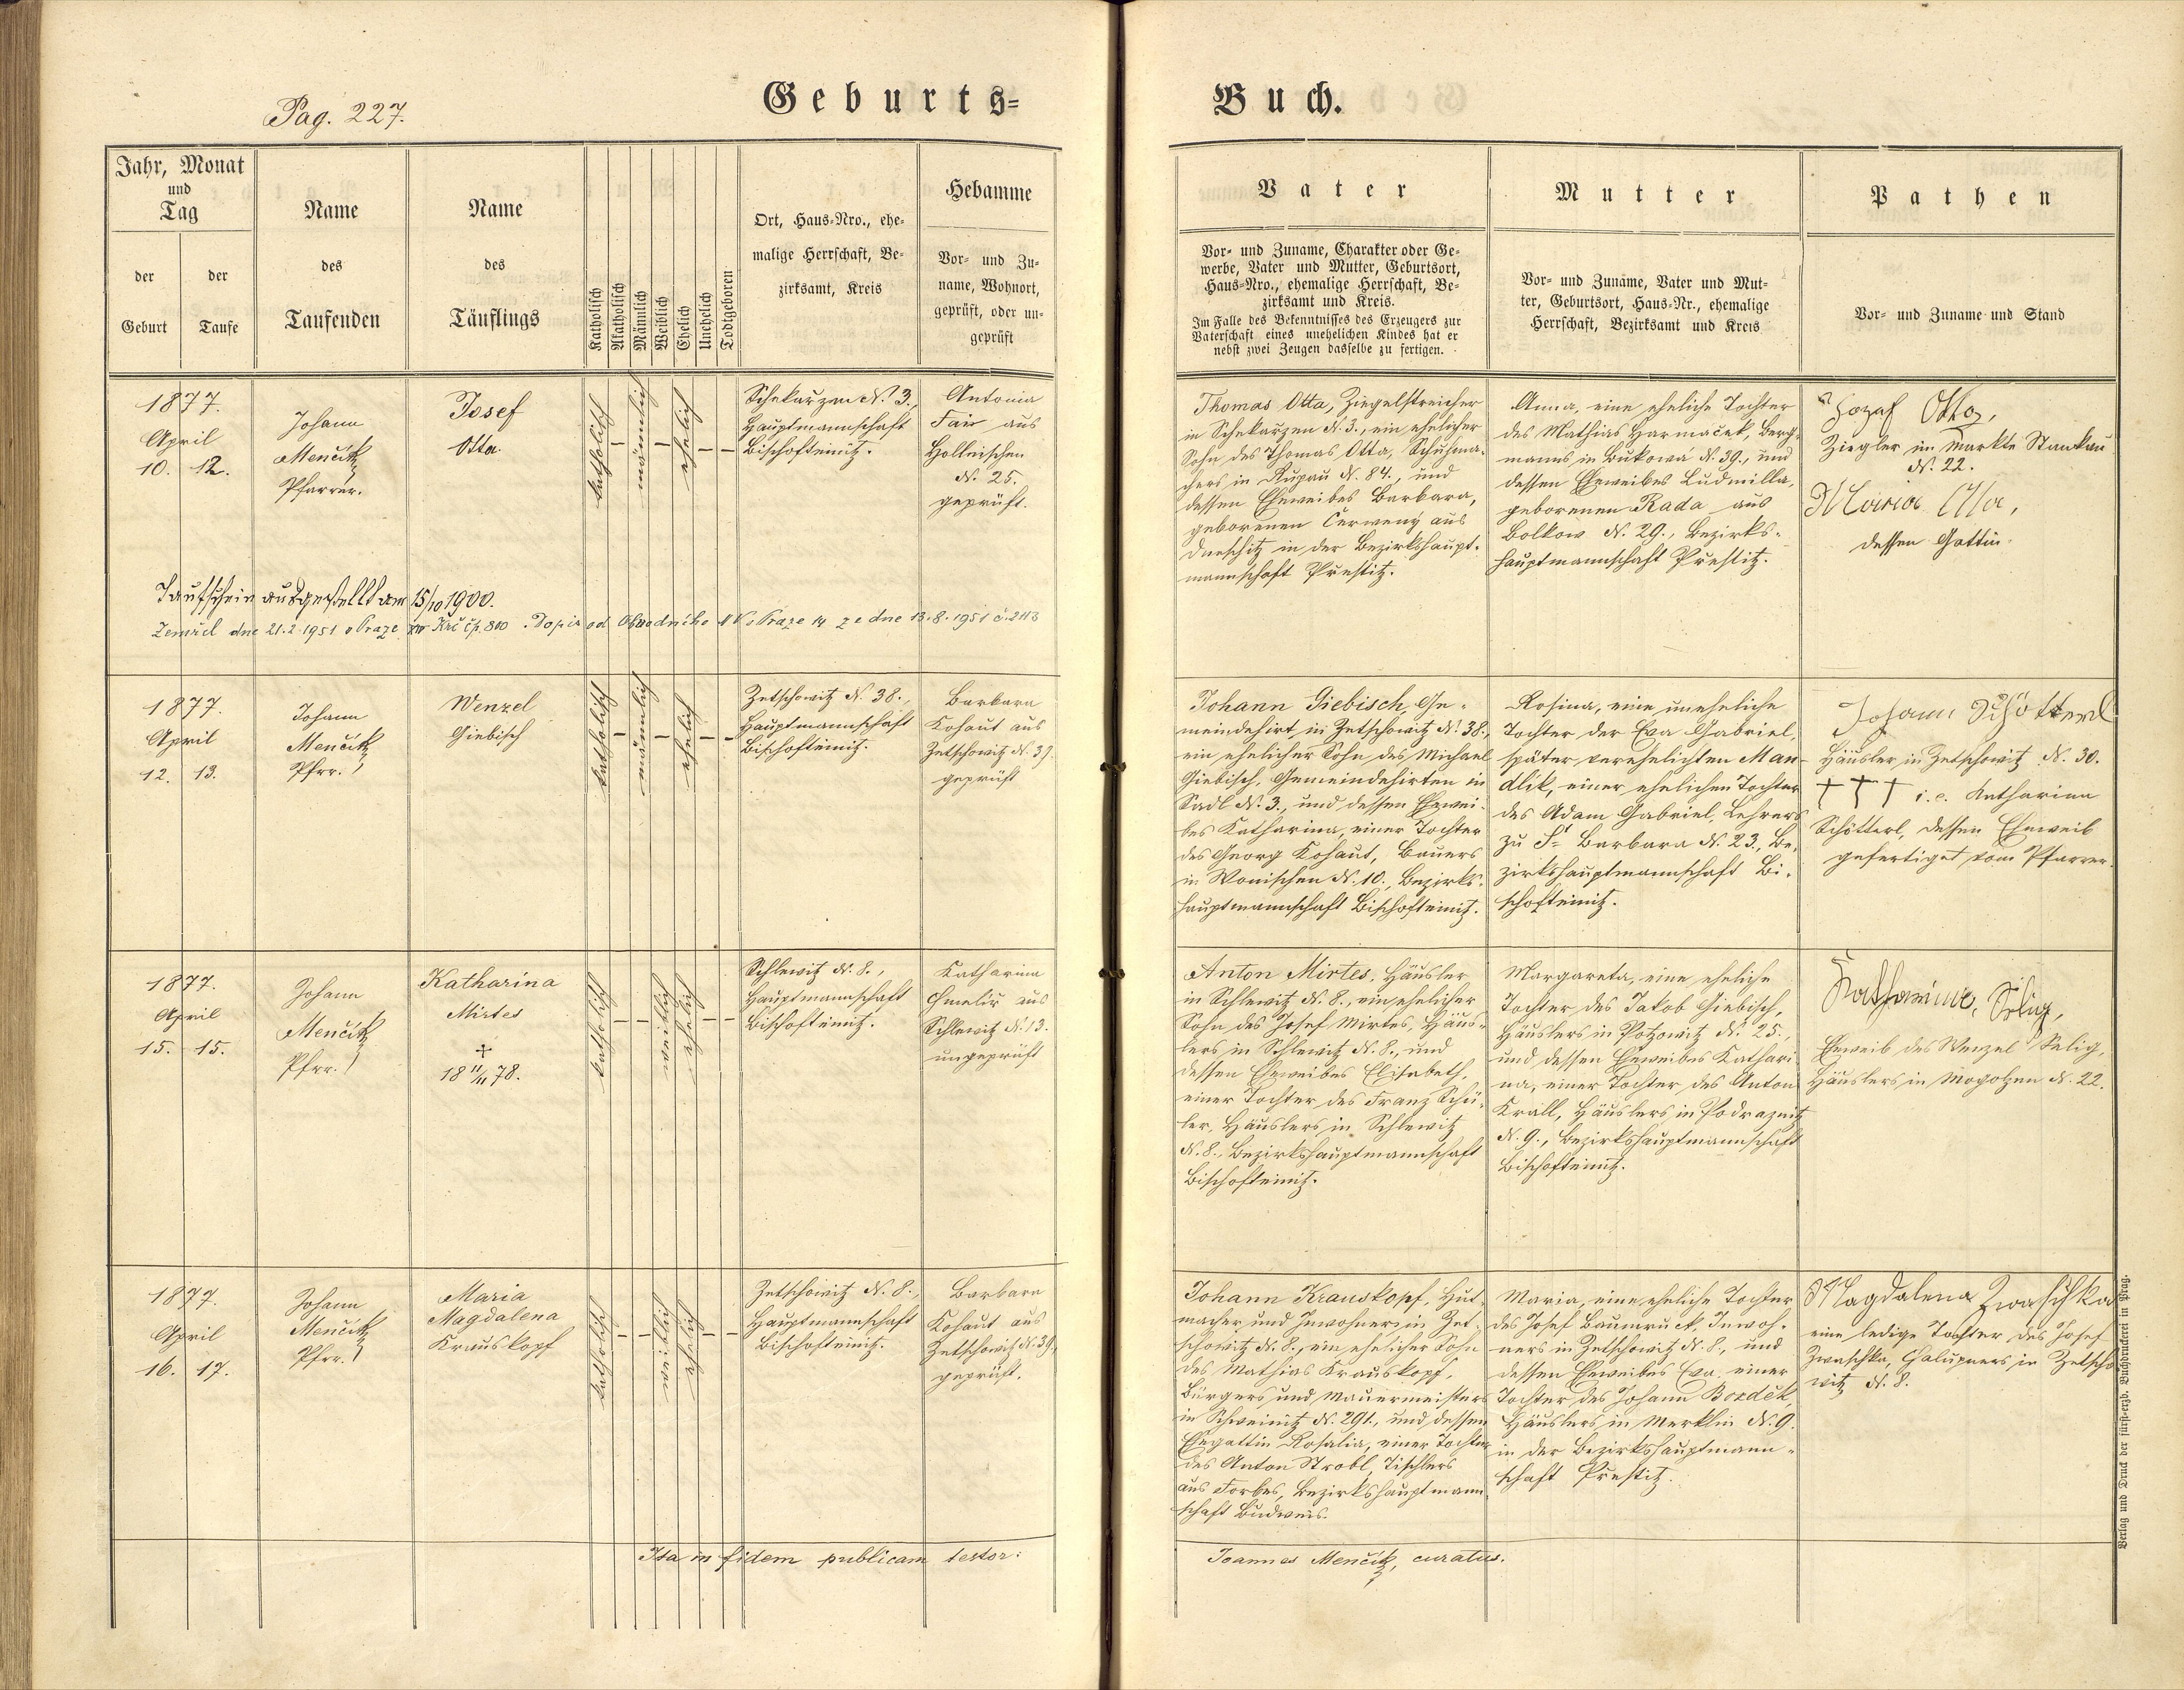 Pag. 227.
Geburts=
Buch.
Jahr, Monat
und
Tag
der
Geburt
der
Taufe
Name
des
Taufenden
Name
des
Täuflings
Katholisch
Akatholisch
Männlich
Weiblich
Ehelich
Unehelich
Todtgeboren
Ort, Haus=Nro., ehe=
malige Herrschaft, Be=
zirksamt, Kreis
Hebamme
Vor= und Zu=
name, Wohnort,
geprüft, oder un=
geprüft
Vater
Vor= und Zuname, Charakter oder Ge=
werbe, Vater und Mutter, Geburtsort,
Haus=Nro., ehemalige Herrschaft, Be=
zirksamt und Kreis.
Im Falle des Bekenntnisses des Erzeugers zur
Vaterschaft eines unehelichen Kindes hat er
nebst zwei Zeugen dasselbe zu fertigen.
Mutter
Vor= und Zuname, Vater und Mut=
ter, Geburtsort, Haus=Nr., ehemalige
Herrschaft, Bezirksamt und Kreis
Pathen
Vor= und Zuname und Stand
1877.
April
10. 12.
Johann
Menčik
Pfarrer.
Josef
Otta.
katholisch
männlich
ehelich
Schekarzen N. 3.,
Hauptmannschaft
Bischofteinitz.
Antonia
Fair aus
Holleischen
N. 25.
geprüft.
Thomas Otta, Ziegelstreicher
in Schekarzen N. 3., ein ehelicher
Sohn des Thomas Otta, Schuhma-
chers in Rupau N. 84., und
dessen Eheweibes Barbara,
geborenen Červeny aus
Dneschitz in der Bezirkshaupt-
mannschaft Prestitz.
Anna, eine eheliche Tochter
des Mathias Harmaček, Berg-
manns in Bukowa N. 39., und
dessen Eheweibes Ludmilla,
geborenen Rada aus
Bolkow N. 29., Bezirks-
hauptmannschaft Prestitz.
Jozaf Otta,
Ziegler im Markte Stankau
N. 22.
Maria Otta,
dessen Gattin.
Taufschein ausgestellt am 15/10 1900.
Zemřel dne 21.2.1951 v Praze XIV Krč čp. 800. Dopis od Obvodního NV v Praze 14 ze dne 13.8.1951 č. 2113
1877.
April
12. 13.
Johann
Menčik
Pfrr.
Wenzel
Giebisch
katholisch
männlich
ehelich
Zetschowitz N. 38.,
Hauptmannschaft
Bischofteinitz.
Barbara
Kohaut aus
Zetschowitz N. 39.
geprüft
Johann Giebisch, Ge-
meindehirt in Zetschowitz N. 38.,
ein ehelicher Sohn des Michael
Giebisch, Gemeindehirten in
Sadl N. 3., und dessen Ehewei-
bes Katharina, einer Tochter
des Georg Kohaut, Bauers
in Wonischen N. 10., Bezirks-
hauptmannschaft Bischofteinitz.
Rosina, eine uneheliche
Tochter der Eva Gabriel,
später verehelichten Man-
dlik, einer ehelichen Tochter
des Adam Gabriel, Lehrers
zu St Barbara N. 23., Be-
zirkshauptmannschaft Bi-
schofteinitz.
Johann Schötterl
Häusler in Zetschowitz N. 30.
† † † i. e. Katharina
Schötterl, dessen Eheweib
gefertiget vom Pfarrer.
1877.
April
15. 15.
Johann
Menčik
Pfrr.
Katharina
Mirtes
+
18 11/11 78.
katholisch
weiblich
ehelich
Schlewitz N. 8.,
Hauptmannschaft
Bischofteinitz.
Katharina
Chmelir aus
Schlewitz N. 13.
ungeprüft
Anton Mirtes, Häusler
in Schlewitz N. 8., ein ehelicher
Sohn des Josef Mirtes, Häus-
lers in Schlewitz N. 8., und
dessen Eheweibes Elisabeth,
einer Tochter des Franz Schü-
ler, Häuslers in Schlewitz
N. 8., Bezirkshauptmannschaft
Bischofteinitz.
Margareta, eine eheliche
Tochter des Jakob Giebisch,
Häuslers in Potzowitz N. 25.,
und dessen Eheweibes Kathari-
na, einer Tochter des Anton
Krall, Häuslers in Podraznitz
N. 9., Bezirkshauptmannschaft
Bischofteinitz.
Katharina Selig,
Eheweib des Wenzel Selig,
Häuslers in Mogolzen N. 22.
1877.
April
16. 17.
Johann
Menčik
Pfrr.
Maria
Magdalena
Krauskopf
katholisch
weiblich
ehelich
Zetschowitz N. 8.,
Hauptmannschaft
Bischofteinitz.
Barbara
Kohaut aus
Zetschowitz N. 39.,
geprüft.
Johann Krauskopf, Hut-
macher und Inwohner in Zet-
schowitz N. 8., ein ehelicher Sohn
des Mathias Krauskopf,
Bürgers und Mauermeisters
in Schweinitz N. 291., und dessen
Ehegattin Rosalia, einer Tochter
des Anton Strobl, Tischlers
aus Forbes, Bezirkshauptmann-
schaft Budweis.
Maria, eine eheliche Tochter
des Josef Baumruck, Inwoh-
ners in Zetschowitz N. 8., und
dessen Eheweibes Eva, einer
Tochter des Johann Bozděk,
Häuslers in Merklin N. 9.
in der Bezirkshauptmann-
schaft Prestitz.
Magdalena Zwaschka
eine ledige Tochter des Josef
Zwaschka, Chalupners in Zetscho
witz N. 8.
Ita in fidem publicam testor:
Joannes Menčik, curatus.
Verlag und Druck der fürst=erzb. Buchdruckerei in Prag.